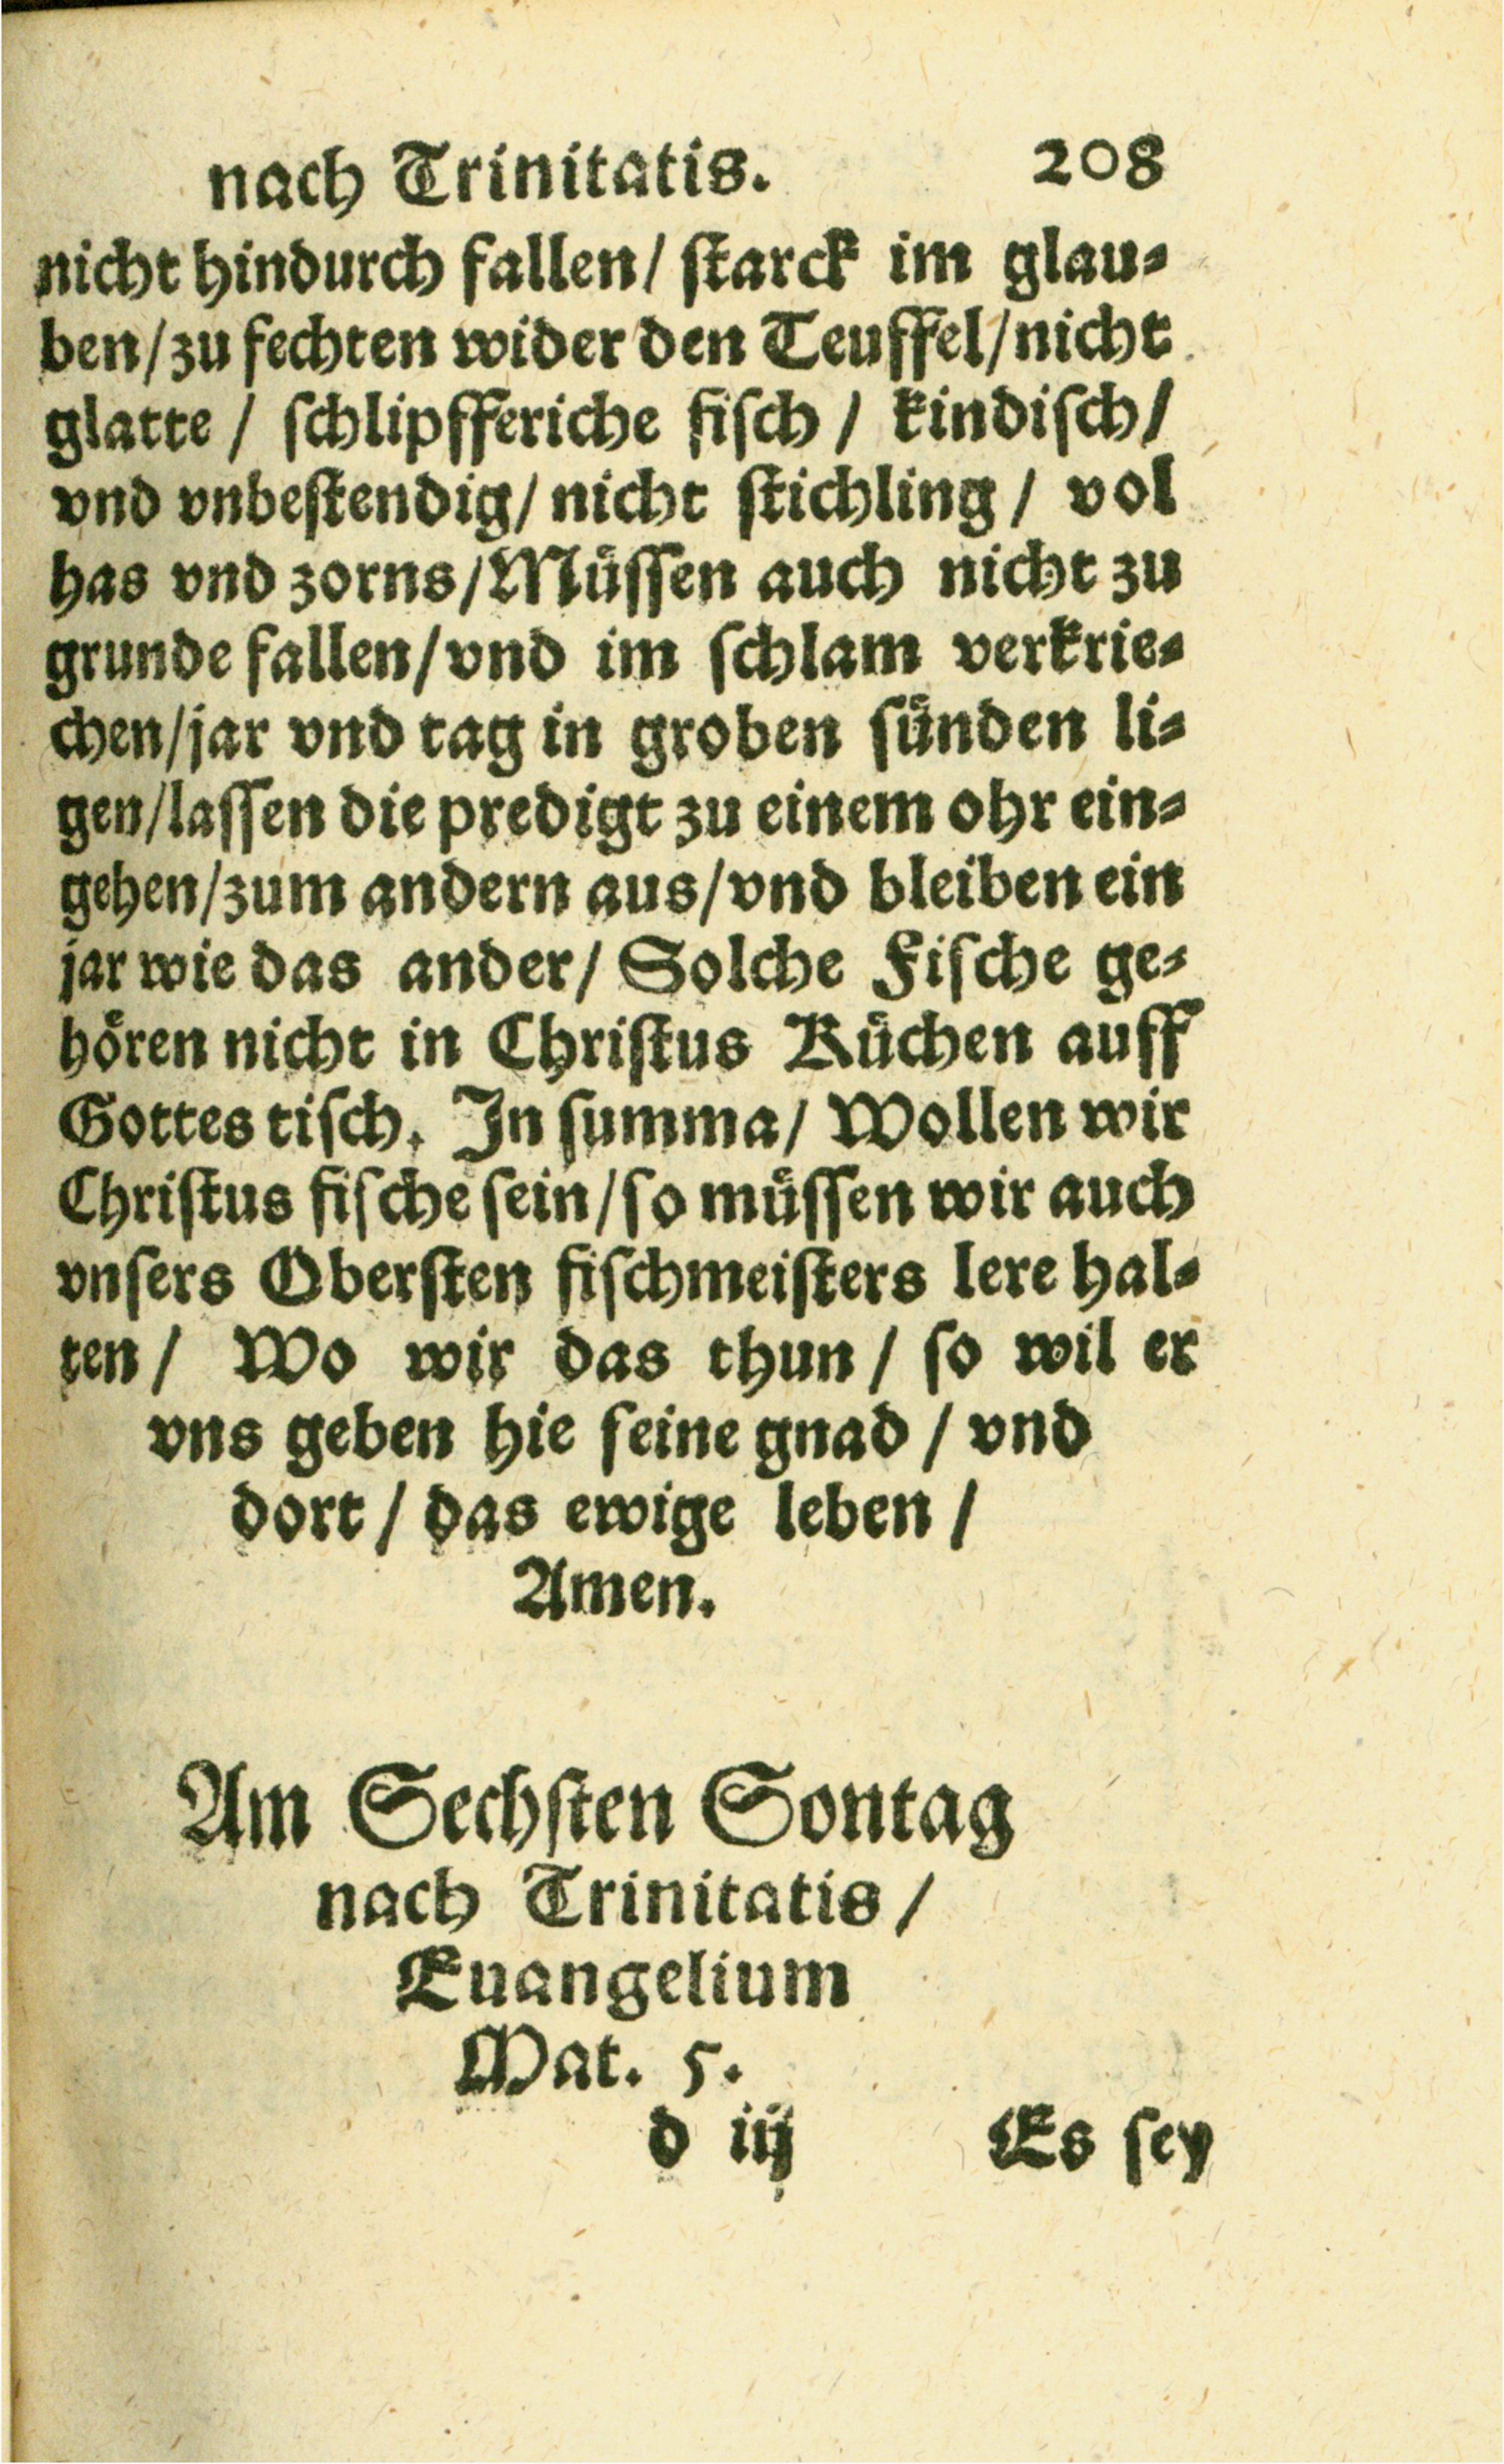 nach Trinitatis. 208
nicht hindurch fallen/ ſtarck im glau⸗
ben/zu fechten wider den Teuffel/nicht
glatte / ſchlipfferiche fiſch / kindiſch/
vnd vnbeſtendig/ nicht ſtichling / vol
has vnd zorns/Müſſen auch nicht zu
grunde fallen/vnd im ſchlam verkrie⸗
chen/jar vnd tag in groben ſünden li⸗
gen/laſſen die predigt zu einem ohr ein⸗
gehen/zum andern aus/vnd bleiben ein
jar wie das ander/ Solche Fiſche ge⸗
hören nicht in Chriſtus Küchen auff
Gottes tiſch. In ſumma/ Wollen wir
Chriſtus fiſche ſein/ſo müſſen wir auch
vnſers Oberſten fiſchmeiſters lere hal⸗
ten/ Wo wir das thun/ ſo wil er
vns geben hie ſeine gnad / vnd
dort / das ewige leben /
Amen.
Am Sechſten Sontag
nach Trinitatis /
Euangelium
Mat. 5.
d iij Es ſey